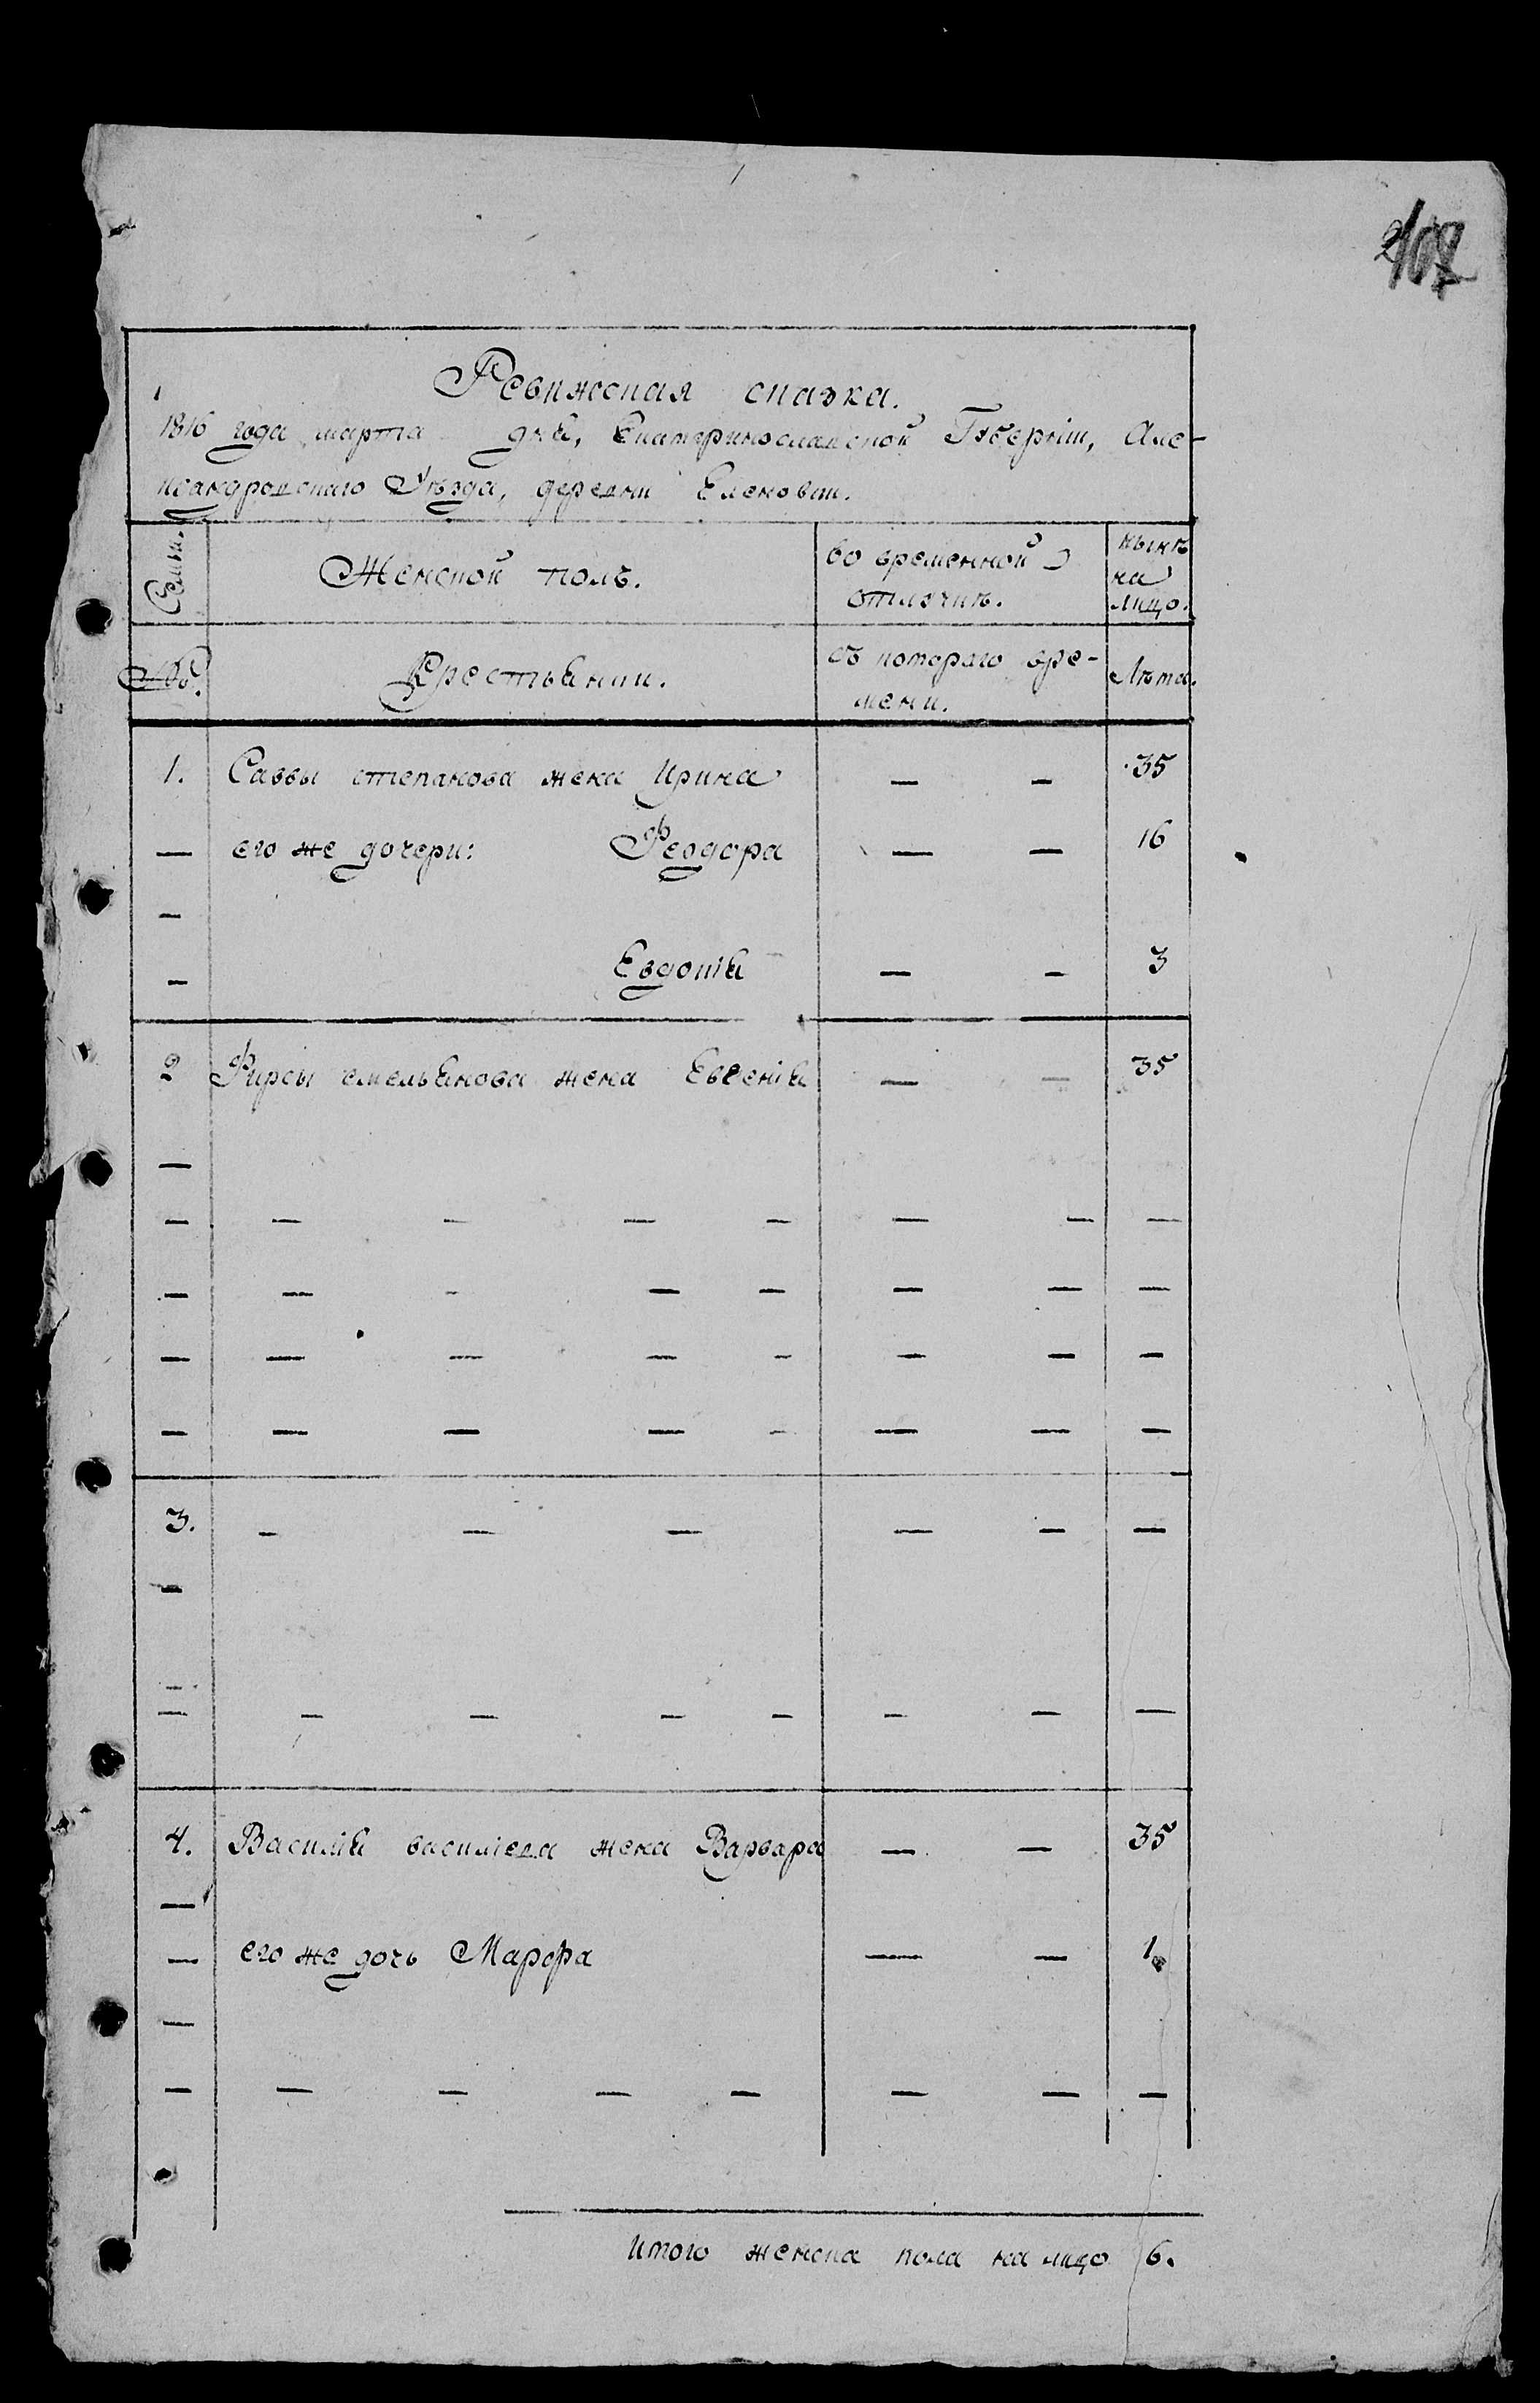 Ревижская сказка.
1816 года марта дня, Екатеринославской Губерніи, Але-
ксандровскаго Уѣзда, деревни Еленовки.
Семьи.
Женской полъ.
во временной
отлучкѣ.
нынѣ
на
лицо.
№.
Крестьянки.
съ котораго вре-
мени.
Лѣта.
1. Саввы степанова жена Ирина — — 35
— его же дочери: Феодора — — 16
—
— Евдокія — — 3
2 Фирсы емельянова жена Евгенія — — 35
—
— — — — — — — —
— — — — — — — —
— — — — — — — —
— — — — — — — —
3. — — — — — —
—
—
— — — — — — — —
4. Василія василіева жена Варвара — — 35
—
— его же дочь Марфа — — 1
—
— — — — — — — —
Итого женска пола на лицо 6.